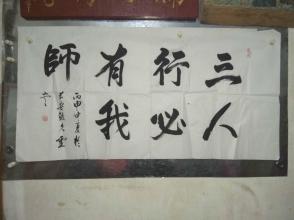 三人
行必
有我
師
丙申中夏於